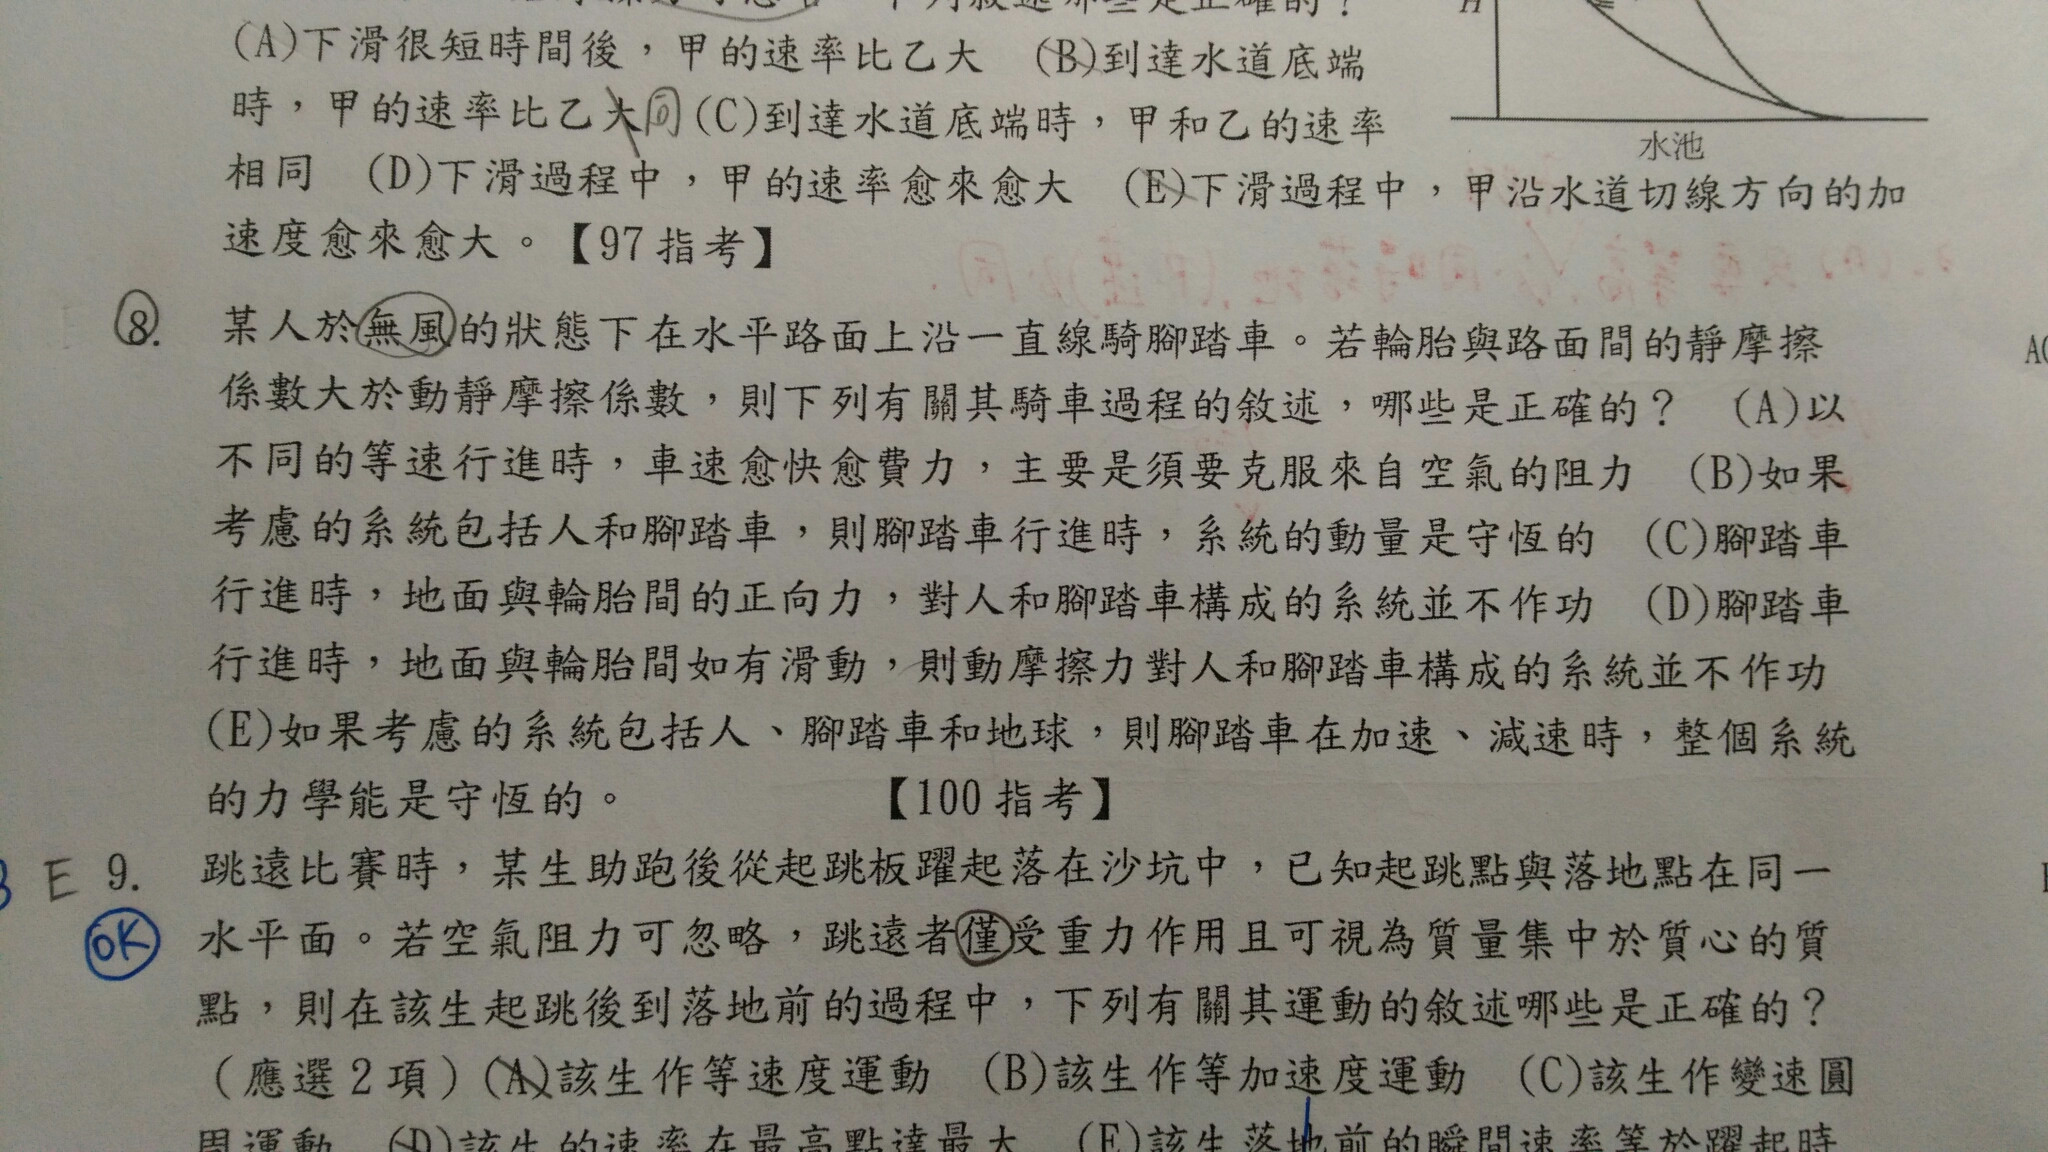 下列敘述哪些是正確的？
H
(A)下滑很短時間後，甲的速率比乙大　(B)到達水道底端
時，甲的速率比乙大同(C)到達水道底端時，甲和乙的速率
相同　(D)下滑過程中，甲的速率愈來愈大　(E)下滑過程中，甲沿水道切線方向的加
水池
速度愈來愈大。【97 指考】
8. 某人於無風的狀態下在水平路面上沿一直線騎腳踏車。若輪胎與路面間的靜摩擦
係數大於動靜摩擦係數，則下列有關其騎車過程的敘述，哪些是正確的？　(A)以
不同的等速行進時，車速愈快愈費力，主要是須要克服來自空氣的阻力　(B)如果
考慮的系統包括人和腳踏車，則腳踏車行進時，系統的動量是守恆的　(C)腳踏車
行進時，地面與輪胎間的正向力，對人和腳踏車構成的系統並不作功　(D)腳踏車
行進時，地面與輪胎間如有滑動，則動摩擦力對人和腳踏車構成的系統並不作功
(E)如果考慮的系統包括人、腳踏車和地球，則腳踏車在加速、減速時，整個系統
的力學能是守恆的。　【100 指考】
E 9. 跳遠比賽時，某生助跑後從起跳板躍起落在沙坑中，已知起跳點與落地點在同一
OK 水平面。若空氣阻力可忽略，跳遠者僅受重力作用且可視為質量集中於質心的質
點，則在該生起跳後到落地前的過程中，下列有關其運動的敘述哪些是正確的？
（應選 2 項）(A)該生作等速度運動　(B)該生作等加速度運動　(C)該生作變速圓
周運動　(D)該生的速率在最高點達最大　(E)該生落地前的瞬間速率等於躍起時